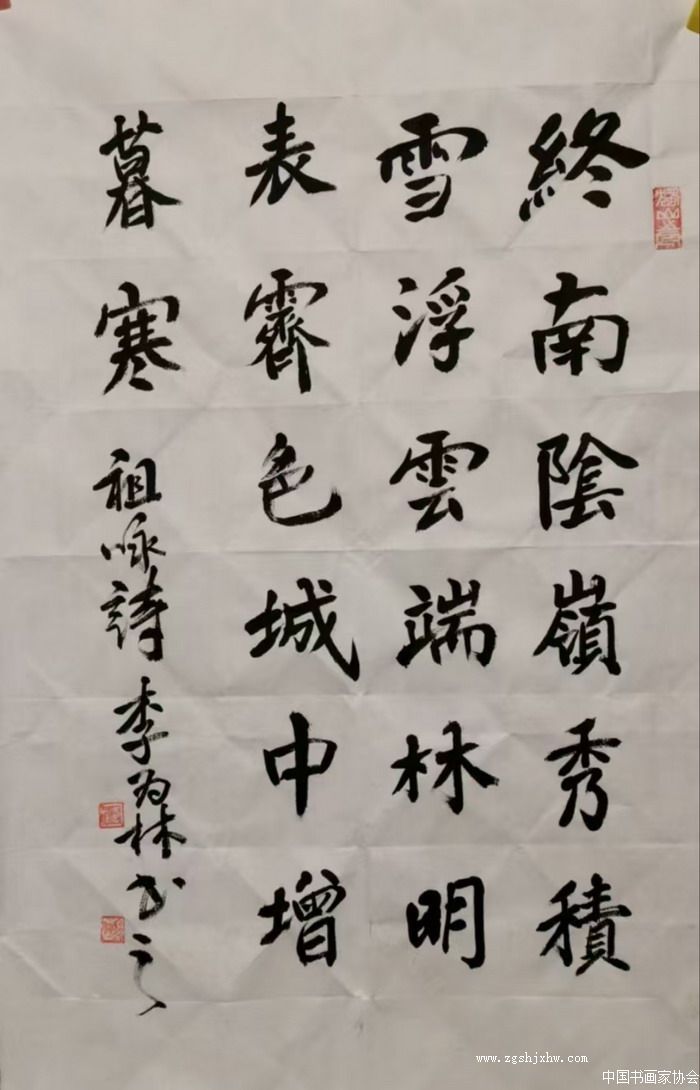 終南陰嶺秀積
雪浮雲端林明
表霽色城中增
暮寒
祖咏詩 李为林书之
www.zgshjxhw.com
中国书画家协会